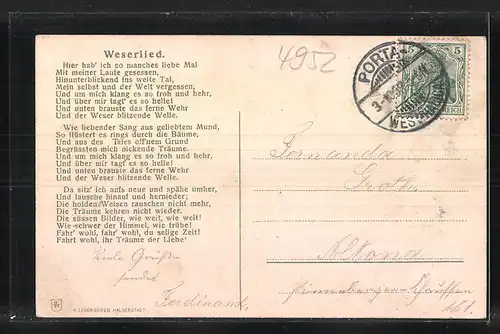 Weserlied.
4952
Hier hab' ich so manches liebe Mal
Mit meiner Laute gesessen,
Hinunterblickend ins weite Tal,
Mein selbst und der Welt vergessen,
Und um mich klang es so froh und hehr,
Und über mir tagt' es so helle!
Und unten brauste das ferne Wehr
Und der Weser blitzende Welle.
Wie liebender Sang aus geliebtem Mund,
So flüstert es rings durch die Bäume,
Und aus des Tales off'nem Grund
Begrüssten mich nickende Träume.
Und um mich klang es so froh und hehr,
Und über mir tagt' es so helle!
Und unten brauste das ferne Wehr
Und der Weser blitzende Welle.
Da sitz' ich aufs neue und spähe umher,
Und lausche hinauf und hernieder;
Die holden Weisen rauschen nicht mehr,
Die Träume kehren nicht wieder.
Die süssen Bilder, wie weit, wie weit!
Wie schwer der Himmel, wie trübe!
Fahr' wohl, fahr' wohl, du selige Zeit!
Fahrt wohl, ihr Träume der Liebe
Viele Grüße
sendet
Ferdinand.
H. LEDERBOGEN, HALBERSTADT.
PORTA
5 5
REICH
Fernanda
Groth
Altona
Pinneberger-Chaussee
161.